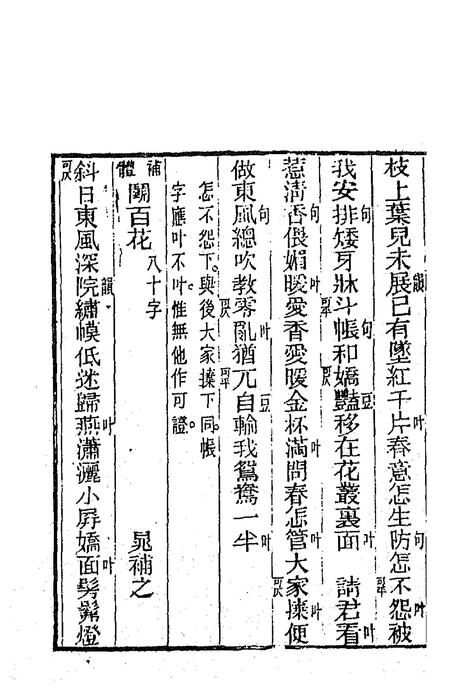 枝上葉兒未展韻已有墜紅千片叶春意怎生防句怎可平不怨叶被
我安排句矮牙牀可平斗帳句和可仄嬌豔豆移在花叢裏面叶 請君看叶
惹清香句偎媚暖叶愛香愛暖金杯滿叶問春怎管叶大可仄家拚叶便
做東風句總吹可仄敎零亂叶猶可平兀自豆輸我鴛鴦一半叶
怎不怨下與後大家拚下同帳
字應叶不叶惟無他作可證
補體 鬭百花 八十字 晁補之
斜可仄日東風深院韻繡幙低迷歸燕叶瀟灑小屛嬌面叶髣髴燈